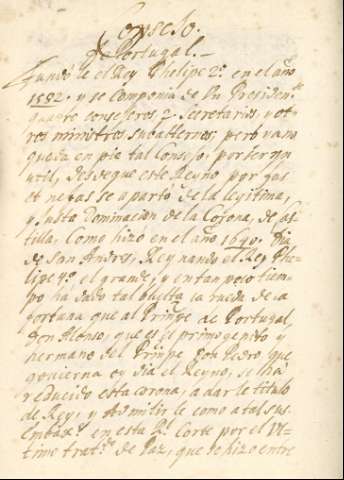 Consejo.
de Portugal.
fundòle el Rey Phelipe 2º. en el año
1582. y se componia de Un Presiden.te
quatro consejeros 2. Secretarios, y ot-
ros ministros subalternos; però ya no
queda en pie tal Consejo, por ser yn
util, desde que este Reyno por fas
et nefas se apartò de la legitima,
y justa Dominacion de la Corona, de Cas-
tilla. Como hizo en el año 1640. Dia
de San Andres, Reynando el Rey Phe-
lipe 4º. el grande, y en tan poco tiem-
po ha dado tal buelta la rueda de la
fortuna que al Prinçpe de Portugal,
Don Alonso, que es el primogenito y
hermano del Prinçpe Don Pedro, que
govierna oy dia el Reyno, se ha
reducido esta corona, a dar le titulo
de Rey, y admitir le como a tal sus
Embaxes. en esta Rl. Corte por el Vl-
timo trat.do de Paz, que se hizo entre